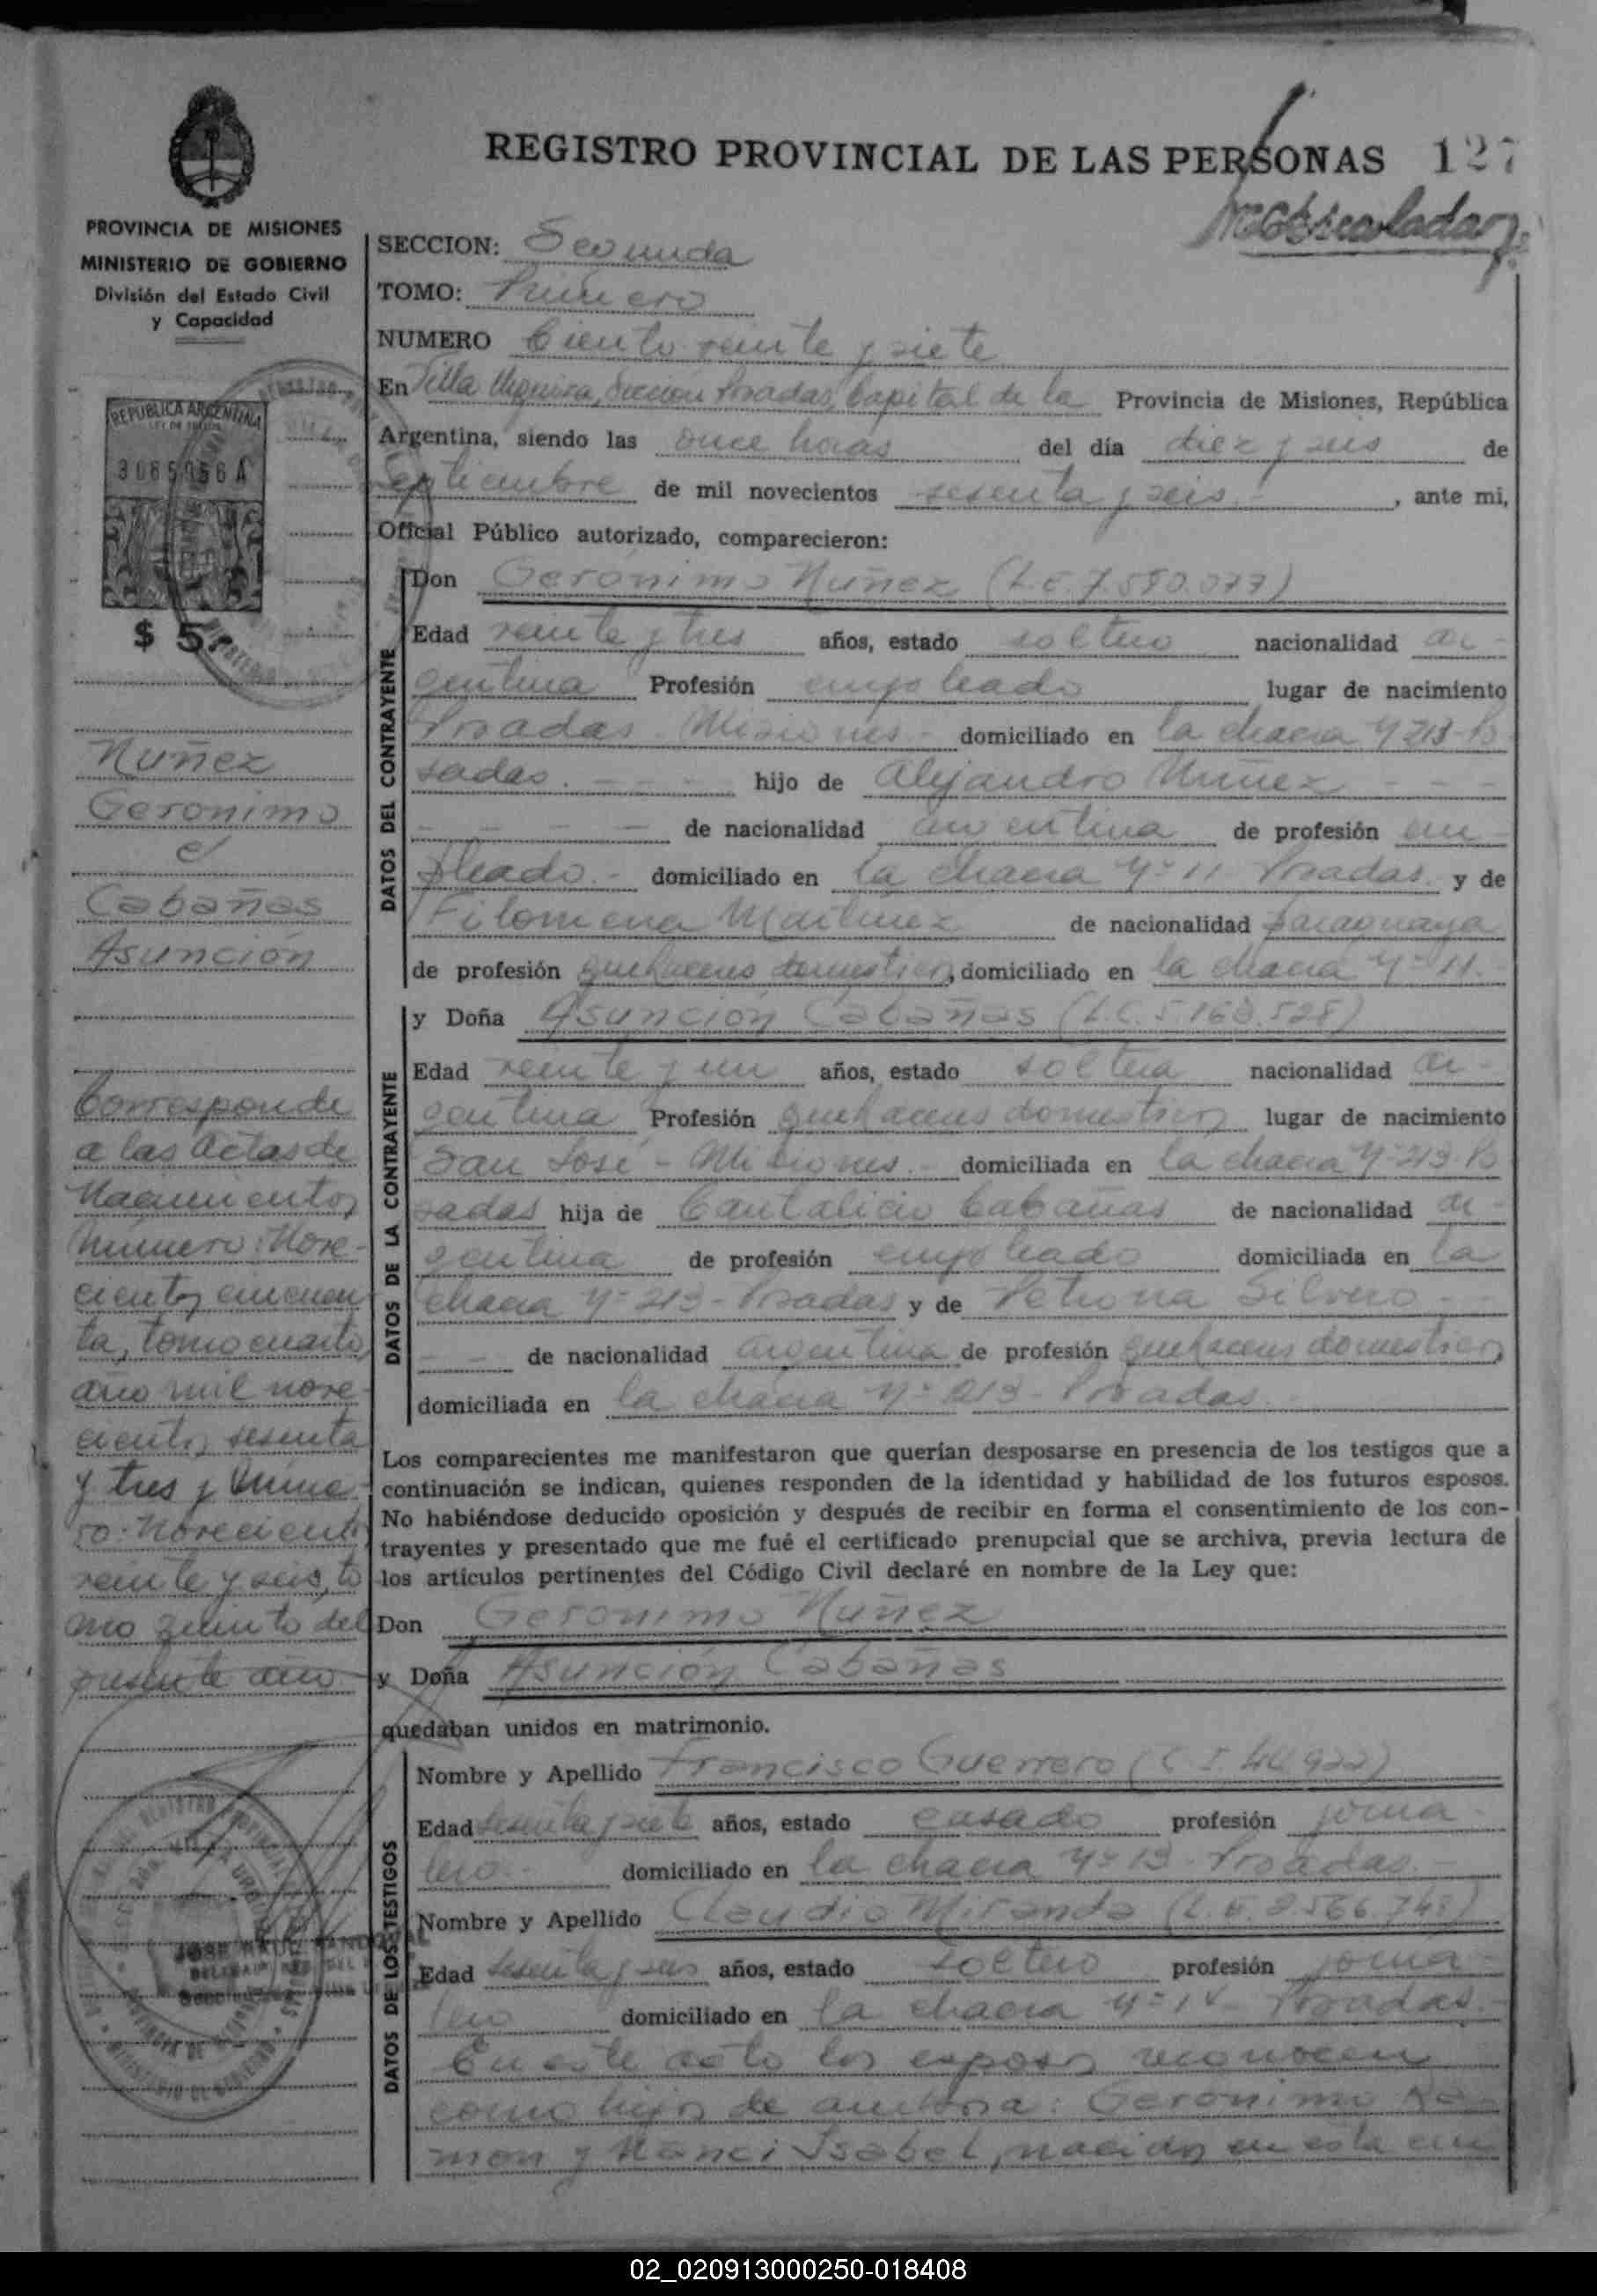 REGISTRO PROVINCIAL DE LAS PERSONAS 127
PROVINCIA DE MISIONES
MINISTERIO DE GOBIERNO
División del Estado Civil
y Capacidad
REPUBLICA ARGENTINA
$ 5
Nuñez
Geronimo
e/
Cabañas
Asunción
Corresponde
a las actas de
Nacimientos
número: Nove-
cientos cincuen
ta, tomo cuarto
año mil nove-
cientos sesenta
y tres y Núme-
ro: Novecientos
veinte y seis, to
mo quinto del
presente año.
SECCION: Segunda
TOMO: Primero
NUMERO Ciento veinte y siete
En Villa Urquiza, Sección Posadas, Capital de la Provincia de Misiones, República
Argentina, siendo las once horas del día diez y seis de
Septiembre de mil novecientos sesenta y seis.-, ante mi,
Oficial Público autorizado, comparecieron:
DATOS DEL CONTRAYENTE
Don Geronimo Nuñez (L.E. 7.580.077)
Edad veinte y tres años, estado soltero nacionalidad ar-
gentina Profesión empleado lugar de nacimiento
Posadas - Misiones.- domiciliado en la chacra Nº 213- Po
sadas.- - - - hijo de Alejandro Nuñez - - -
- - - - de nacionalidad argentina de profesión em-
pleado.- domiciliado en la chacra Nº 11 Posadas. y de
Filomena Martinez de nacionalidad paraguaya
de profesión quehaceres domesticos, domiciliado en la chacra Nº 11.-
DATOS DE LA CONTRAYENTE
y Doña Asunción Cabañas (L.C. 5.168.528)
Edad veinte y un años, estado soltera nacionalidad ar-
gentina Profesión quehaceres domesticos lugar de nacimiento
San José - Misiones.- domiciliada en la chacra Nº 213- Po
sadas hija de Cantalicio Cabañas de nacionalidad ar-
gentina de profesión empleado domiciliada en la
chacra Nº 213- Posadas y de Petrona Silvero - -
- - de nacionalidad argentina de profesión quehaceres domesticos
domiciliada en la chacra Nº 213 - Posadas.-
Los comparecientes me manifestaron que querían desposarse en presencia de los testigos que a
continuación se indican, quienes responden de la identidad y habilidad de los futuros esposos.
No habiéndose deducido oposición y después de recibir en forma el consentimiento de los con-
trayentes y presentado que me fué el certificado prenupcial que se archiva, previa lectura de
los artículos pertinentes del Código Civil declaré en nombre de la Ley que:
Don Geronimo Nuñez
y Doña Asunción Cabañas
quedaban unidos en matrimonio.
DATOS DE LOS TESTIGOS
Nombre y Apellido Francisco Guerrero (C.I. 44.922)
Edad sesenta y siete años, estado casado profesión jorna-
lero.- domiciliado en la chacra Nº 13 - Posadas.-
Nombre y Apellido Claudio Miranda (L.E. 2.566.748)
Edad sesenta y seis años, estado soltero profesión jorna-
lero domiciliado en la chacra Nº 14 - Posadas.-
En este acto los esposos reconocen
como hijos de ambos: Geronimo Ra-
mon y Nanci Isabel, nacidos en esta ciu
02_020913000250-018408